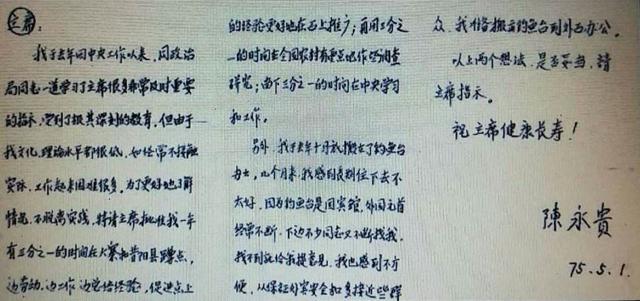 主席：
我于去年回中央工作以来，同政治
局同志一道学习了主席很多非常及时重要
的指示，受到了极其深刻的教育，但由于
我文化、理论水平都很低，如经常不接触
实际，工作起来困难很多，为了更好地了解
情况，不脱离实践，特请主席批准我一年
有三分之一的时间在大寨和昔阳县蹲点，
边劳动、边工作、边总结经验，促进点上
的经验更好地在面上推广；再用三分之
一的时间在全国农村有重点地作些调查
研究；留下三分之一的时间在中央学习
和工作。
另外，我于去年十月就搬去了钓鱼台
办公，几个月来，我感到长期住下去不
太好，因为钓鱼台是国宾馆，外国元首
经常不断，下边不少同志又不断找我，
找不到就给我提意见，我也感到不方
便，从保证外宾安全和多接近些群
众，我准备搬出钓鱼台到外面办公。
以上两个想法，是否妥当，请
主席指示。
祝主席健康长寿！
陳永貴
75.5.1.